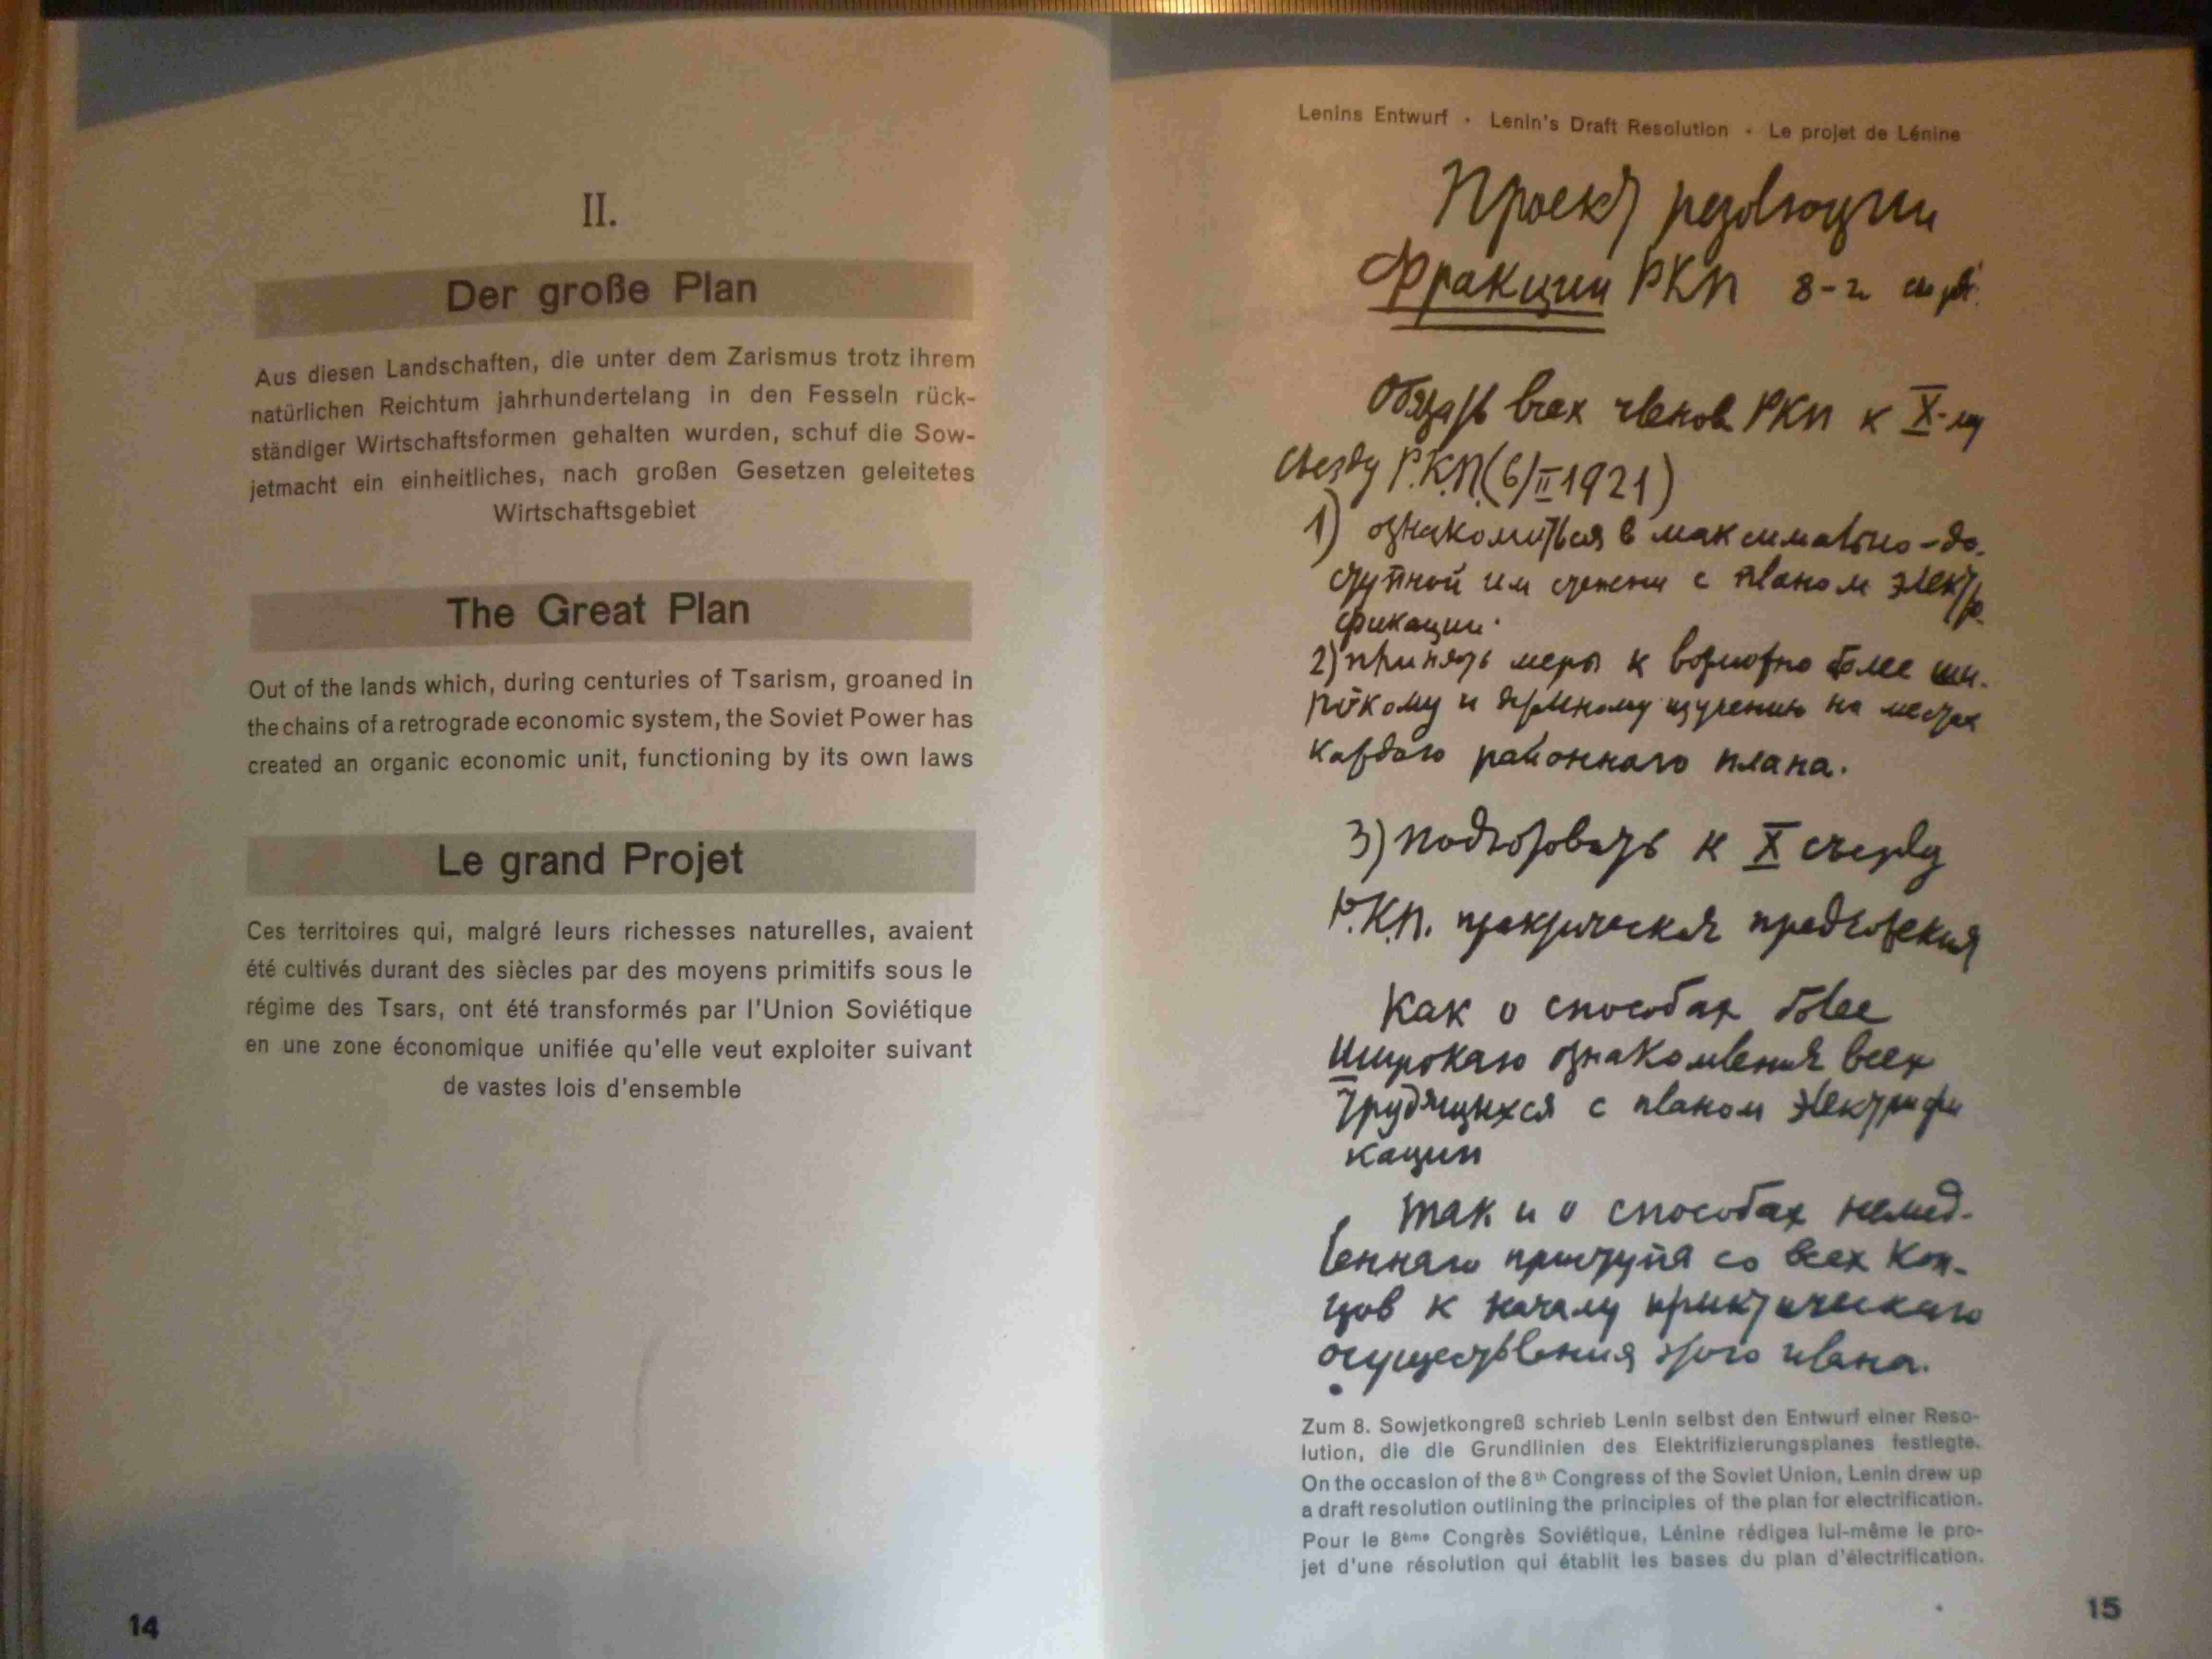 II.
Der große Plan
Aus diesen Landschaften, die unter dem Zarismus trotz ihrem
natürlichen Reichtum jahrhundertelang in den Fesseln rück-
ständiger Wirtschaftsformen gehalten wurden, schuf die Sow-
jetmacht ein einheitliches, nach großen Gesetzen geleitetes
Wirtschaftsgebiet
The Great Plan
Out of the lands which, during centuries of Tsarism, groaned in
the chains of a retrograde economic system, the Soviet Power has
created an organic economic unit, functioning by its own laws
Le grand Projet
Ces territoires qui, malgré leurs richesses naturelles, avaient
été cultivés durant des siècles par des moyens primitifs sous le
régime des Tsars, ont été transformés par l'Union Soviétique
en une zone économique unifiée qu'elle veut exploiter suivant
de vastes lois d'ensemble
14
Lenins Entwurf · Lenin's Draft Resolution · Le projet de Lénine
Проект резолюции
Фракции РКП 8-г
Обязать всех членов РКП к X-му
съезду Р.К.П. (6/II 1921)
1) ознакомиться в максимально-до-
ступной им степени с планом электри
фикации.
2) принять меры к возможно более ши-
рокому и изучению на местах
каждого районного плана.
3) подготовить к X съезду
Р.К.П. практическия предложения
как о способах более
широкаго ознакомления всех
трудящихся с планом электрифи
кации
так и о способах немед-
леннаго приступа со всех кон-
цов к началу практическаго
осуществления этого плана.
Zum 8. Sowjetkongreß schrieb Lenin selbst den Entwurf einer Reso-
lution, die die Grundlinien des Elektrifizierungsplanes festlegte.
On the occasion of the 8th Congress of the Soviet Union, Lenin drew up
a draft resolution outlining the principles of the plan for electrification.
Pour le 8ème Congrès Soviétique, Lénine rédigea lui-même le pro-
jet d'une résolution qui établit les bases du plan d'électrification.
15